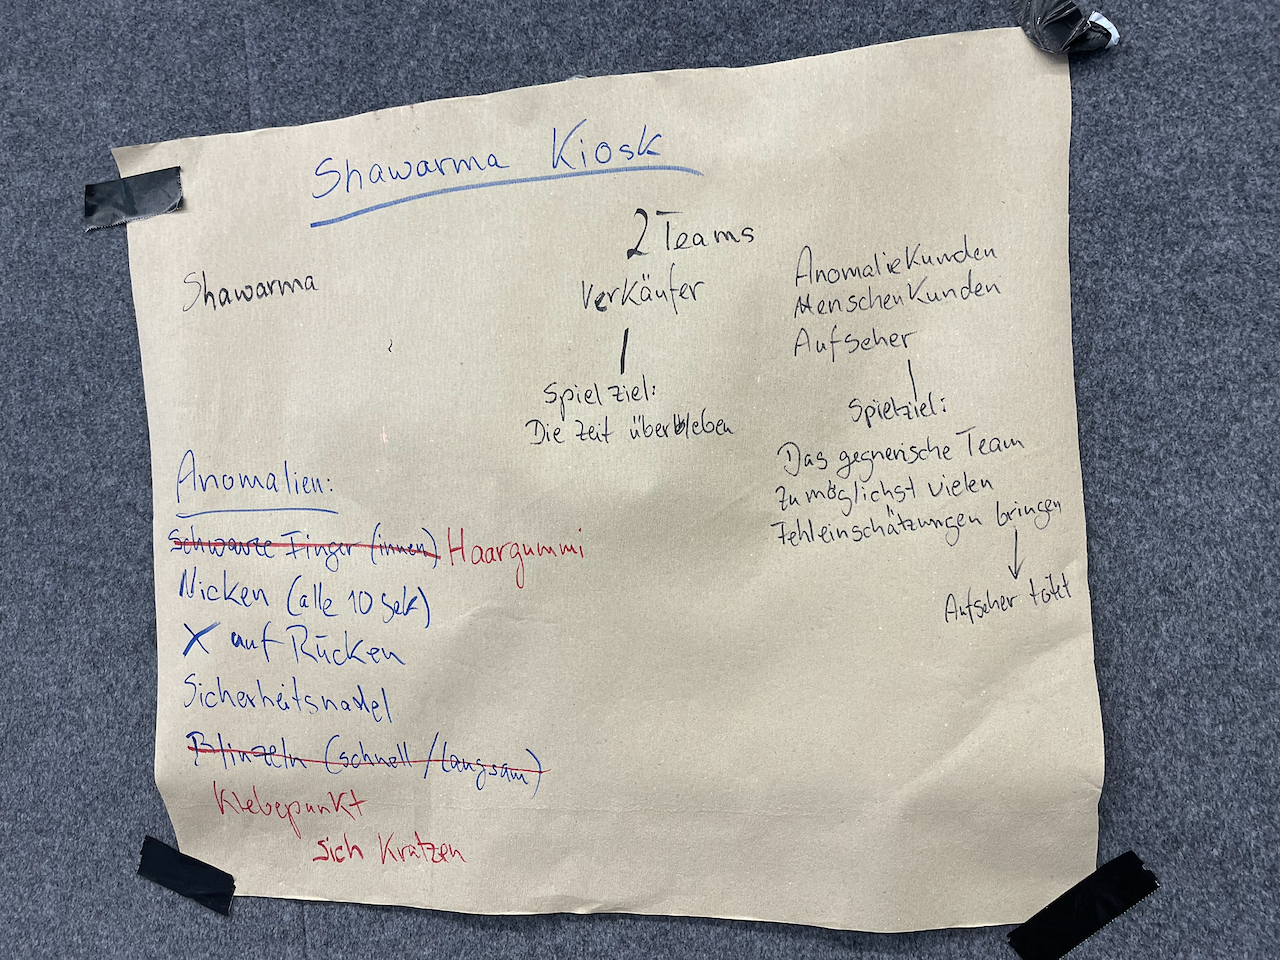 Shawarma Kiosk
Shawarma
2 Teams
Verkäufer
Spielziel:
Die Zeit überleben
AnomalieKunden
MenschenKunden
Aufseher
Spielziel:
Das gegnerische Team
zu möglichst vielen
Fehleinschätzungen bringen
Aufseher tötet
Anomalien:
Schwarze Finger (innen) Haargummi
Nicken (alle 10 Sek)
X auf Rücken
Sicherheitsnadel
Blinzeln (schnell / langsam)
Klebepunkt
sich Kratzen